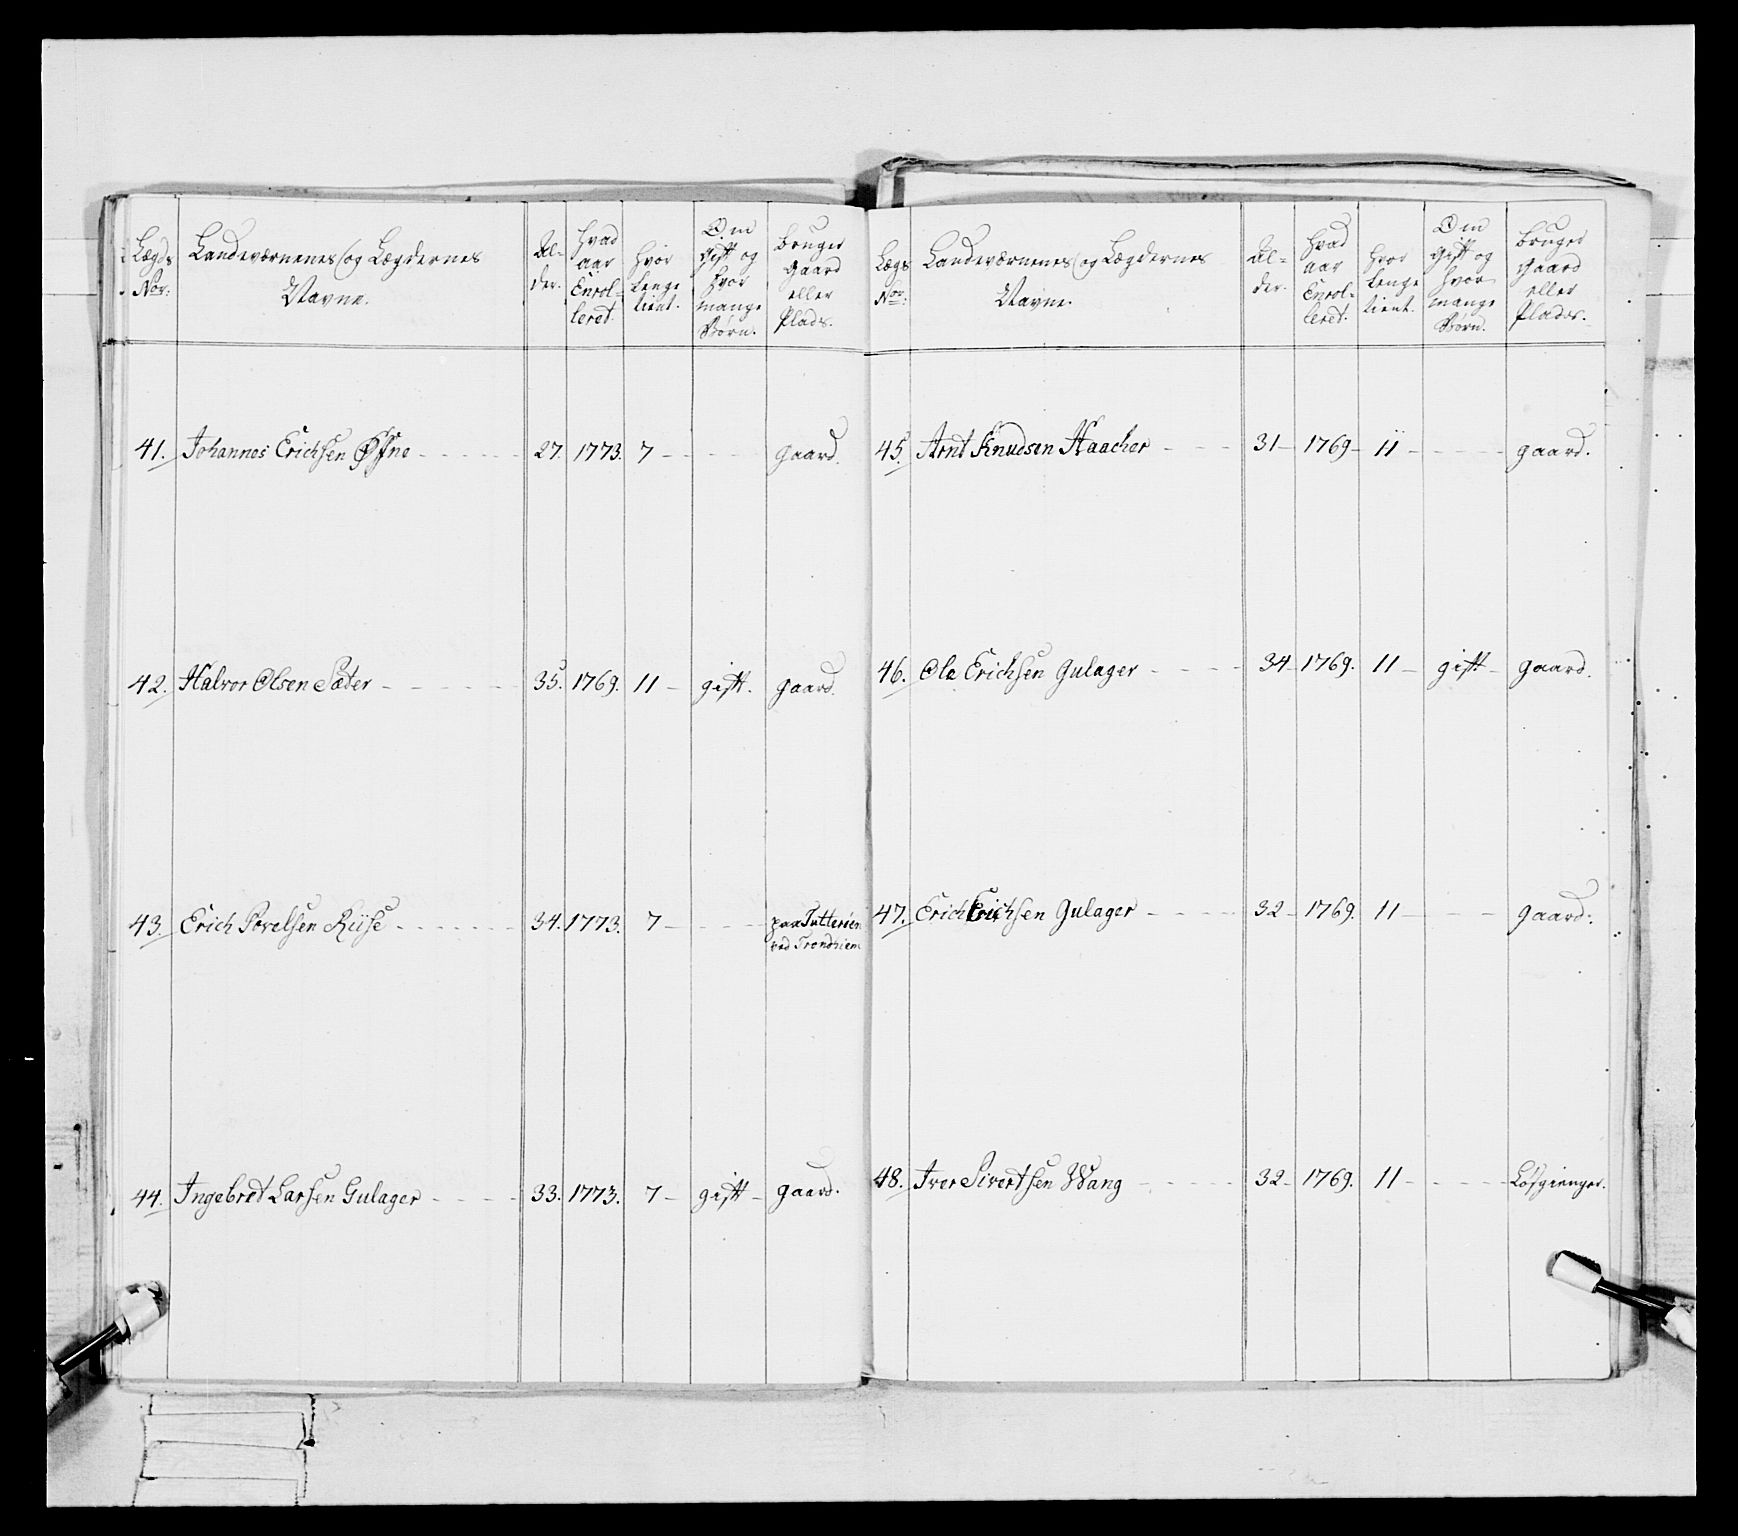 Lægds Nor:
Landeværnenes (og Lægdernes Navne.
Al-der.
Hvad aar Enrol-leret.
Hvor lenge tient.
Om gift og hvor mange Børn.
Bruger Gaard eller Plads.
41. Johannes Erichsen Øfne - - - - - 27. 1773. 7 - - - - gaard.
42. Halvor Olsen Sæter - - - - - 35. 1769. 11 - gift. gaard.
43. Erich Povelsen Riise - - - - - 34. 1773. 7 - - - - paa Tutterøen
ved Trondhiem
44. Ingebret Larsen Gulager - - - - 33. 1773. 7 - gift - gaard.
Lægs Nor:
Landeværnenes (og Lægdernes Navne.
Al-der.
Hvad aar Enrol-leret.
Hvor lenge tient.
Om gift og hvor mange Børn.
Bruger Gaard eller Plads.
45. Arnt Knudsen Haacker - - - 31 - 1769 - 11 - - - - gaard.
46. Ole Erichsen Gulager - - - - 34 - 1769. 11 - gift - gaard.
47. Erich Erichsen Gulager - - - - 32 - 1769. 11 - - - gaard.
48. Iver Sivertsen Wang - - - - 32 - 1769. 11 - - - - Løsgienger.